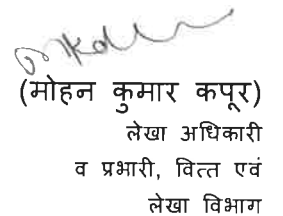 (मोहन कुमार कपूर)
लेखा अधिकारी
व प्रभारी, वित्त एवं
लेखा विभाग